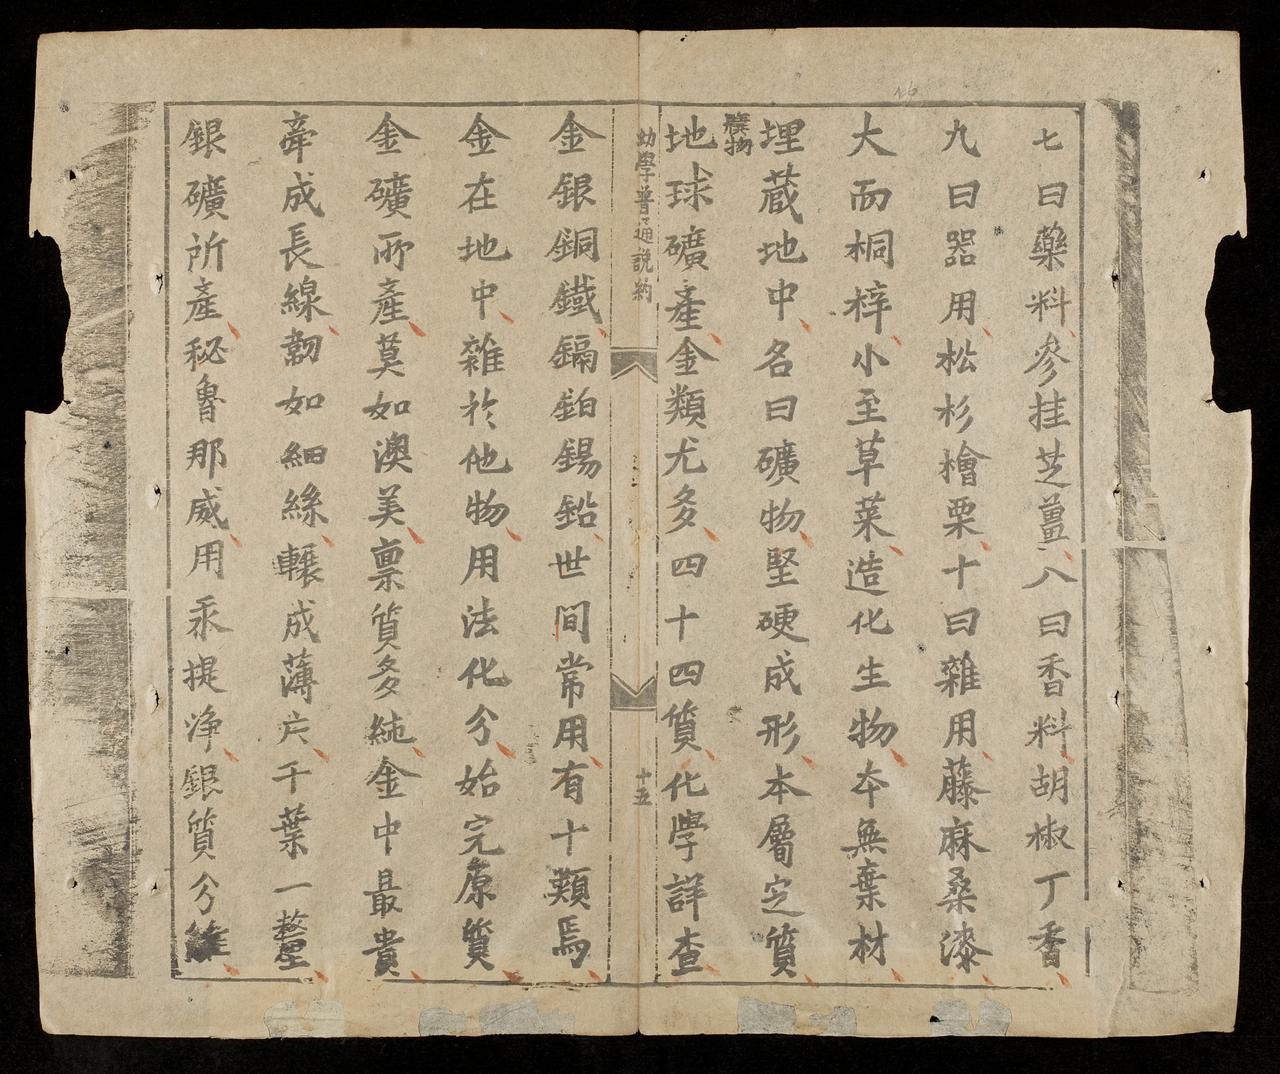 七曰藥料參挂芝薑八曰香料胡椒丁香
九曰器用松杉檜栗十曰雜用藤麻桑漆
大而桐梓小至草菜造化生物夲無棄材
埋蔵地中名曰礦物堅硬成形本屬定質
礦物
地球礦產金類尤多四十四質化學詳查
幼學普通說約
十五
金銀銅鐵鎘鉑錫鉛世間常用有十類焉
金在地中雜於他物用法化分始完原質
金礦所產莫如澳美禀質多純金中最貴
牽成長線韌如細絲輾成薄片千葉一整
銀礦所產秘魯那威用汞提淨銀質分